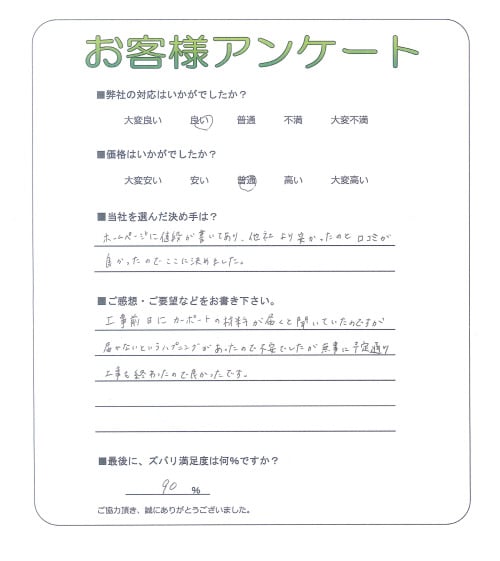 お客様アンケート
■弊社の対応はいかがでしたか？
大変良い 良い 普通 不満 大変不満
■価格はいかがでしたか？
大変安い 安い 普通 高い 大変高い
■当社を選んだ決め手は？
ホームページに値段が書いてあり、他社より安かったのと口コミが
良かったのでここに決めました。
■ご感想・ご要望などをお書き下さい。
工事前日にカーポートの材料が届くと聞いていたのですが
届かないというハプニングがあったので不安でしたが無事に予定通り
工事も終わったので良かったです。
■最後に、ズバリ満足度は何%ですか？
90 %
ご協力頂き、誠にありがとうございました。